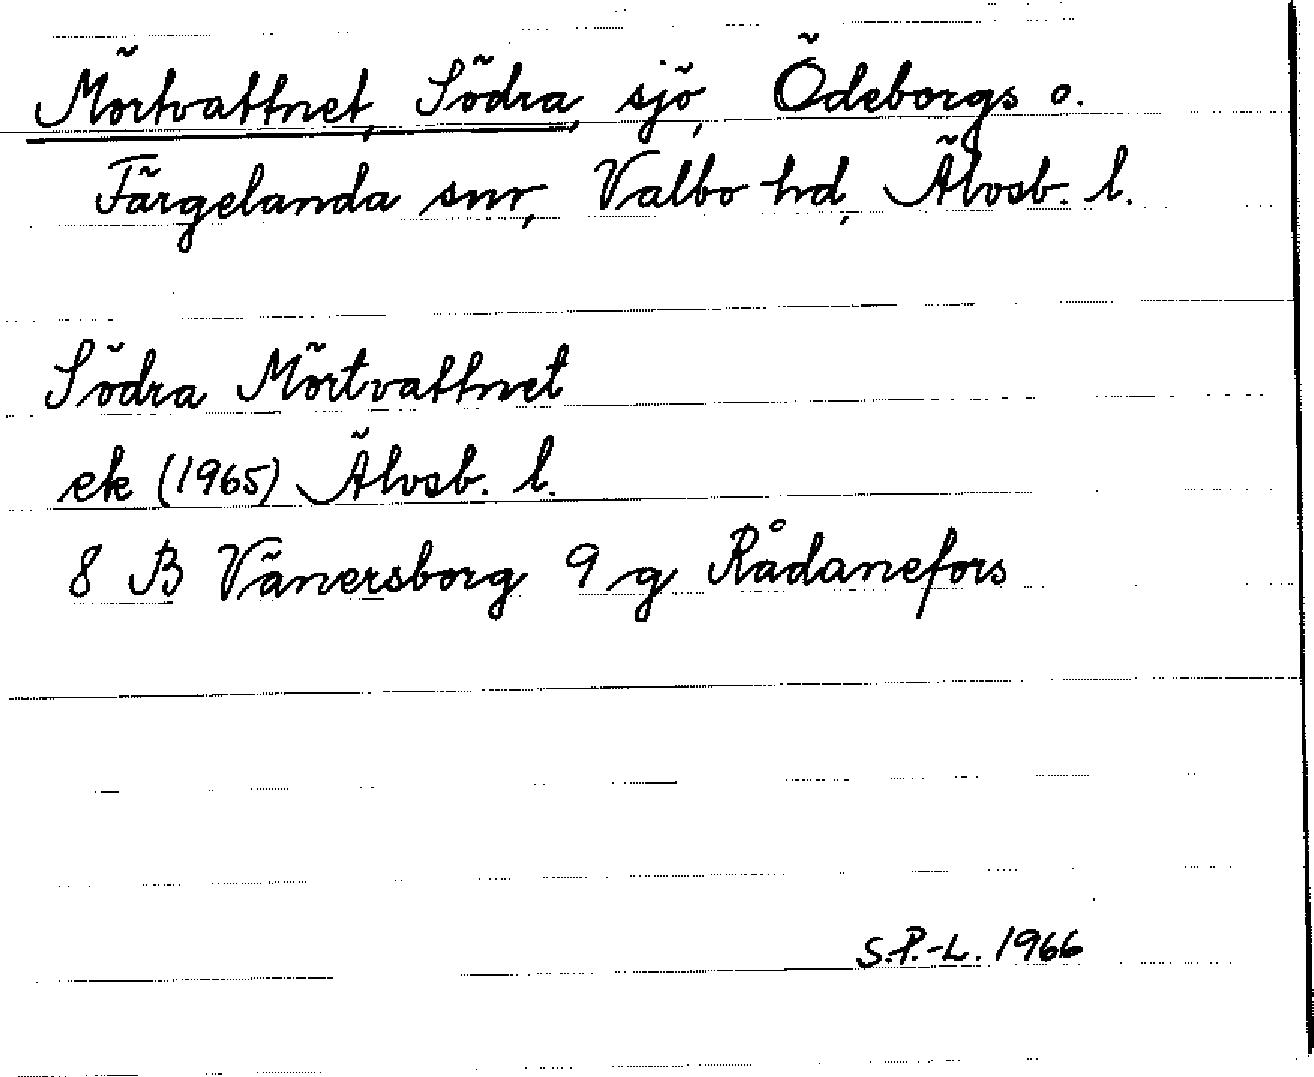 Mörtvattnet, Södra, sjö, Ödeborgs o.
Färgelanda snr, Valbo hd, Älvsb. l.
Södra Mörtvattnet
ek (1965) Älvsb. l.
8 B Vänersborg 9 g Rådanefors
S.P.-L. 1966